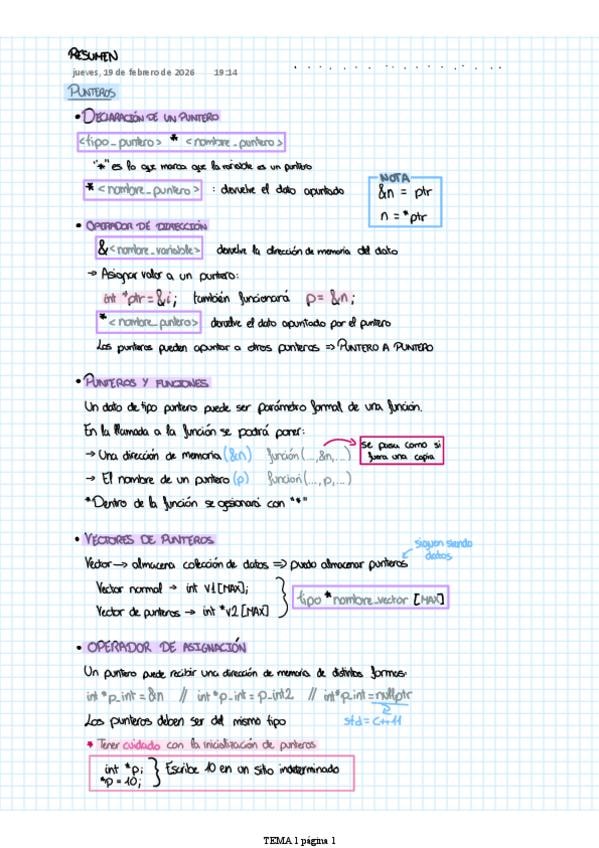 RESUMEN
jueves, 19 de febrero de 2026 19:14
PUNTEROS
• DECLARACIÓN DE UN PUNTERO
<tipo_puntero> * <nombre_puntero>
"*" es lo que marca que la variable es un puntero
* <nombre_puntero> : devuelve el dato apuntado
NOTA
&n = ptr
n = *ptr
• OPERADOR DE DIRECCIÓN
& <nombre_variable> devuelve la dirección de memoria del dato
→ Asignar valor a un puntero:
int *ptr = &i; también funcionará p = &n;
* <nombre_puntero> devuelve el dato apuntado por el puntero
Los punteros pueden apuntar a otros punteros => PUNTERO A PUNTERO
• PUNTEROS Y FUNCIONES
Un dato de tipo puntero puede ser parámetro formal de una función.
En la llamada a la función se podrá poner:
→ Una dirección de memoria (&n) función (...,&n,...)
se pasa como si
fuera una copia
→ El nombre de un puntero (p) función (...,p,...)
*Dentro de la función se gesionará con "*"
• VECTORES DE PUNTEROS
siguen siendo
datos
Vector → almacena colección de datos => puedo almacenar punteros
Vector normal → int v1[MAX];
Vector de punteros → int *v2[MAX]
tipo *nombre_vector [MAX]
• OPERADOR DE ASIGNACIÓN
Un puntero puede recibir una dirección de memoria de distintas formas:
int *p_int = &n // int *p_int = p_int2 // int *p_int = nullptr
Los punteros deben ser del mismo tipo
std=c++11
* Tener cuidado con la inicialización de punteros
int *p;
*p = 10;
Escribe 10 en un sitio indeterminado
TEMA 1 página 1